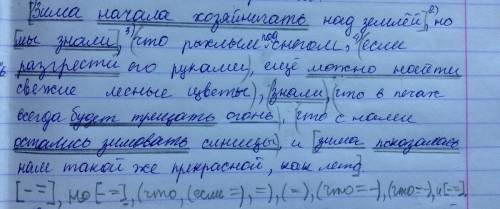 [Зима начала хозяйничать над землей],²⁾ но
[мы знали],³⁾ (что под рыхлым снегом,⁴⁾ (если
разгрести его руками), ещё можно найти
свежие лесные цветы), [знали], (что в печах
всегда будет трещать огонь), (что с нами
остались зимовать синицы) и [зима показалась
нам такой же прекрасной, как лето].
[- =], но [- =], (что, (если =), =), (=), (что = -), (что = -), и [- =].